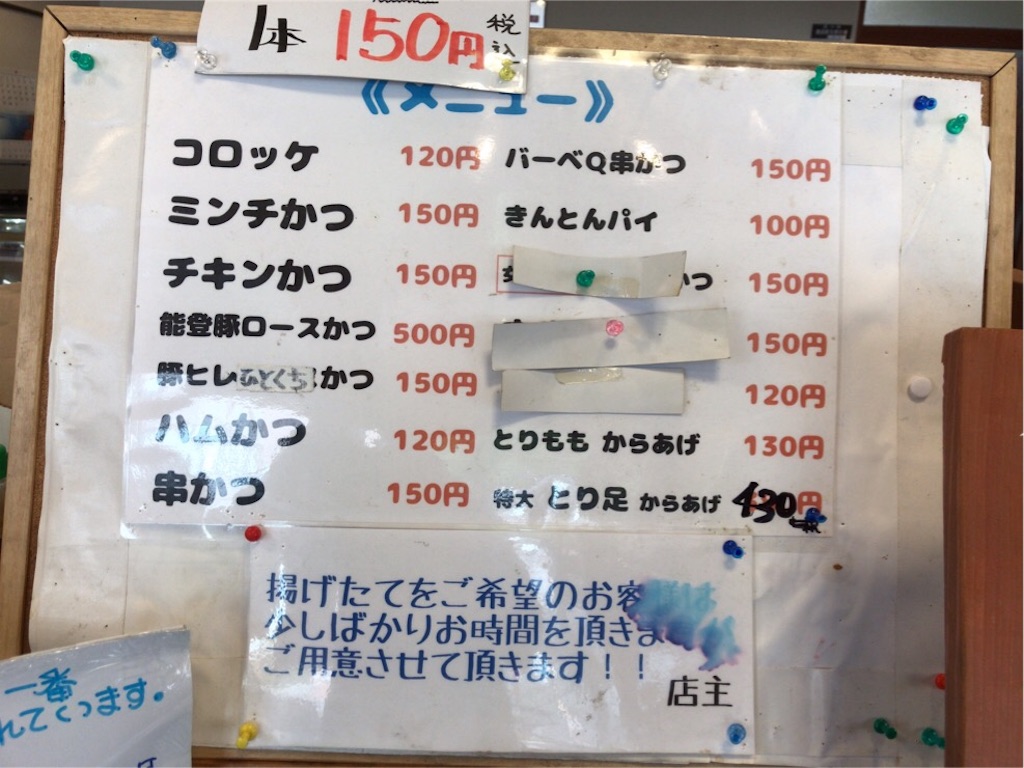 1本 150円 税込
《メニュー》
コロッケ 120円
ミンチかつ 150円
チキンかつ 150円
能登豚ロースかつ 500円
豚ヒレひとくちかつ 150円
ハムかつ 120円
串かつ 150円
バーベQ串かつ 150円
きんとんパイ 100円
かつ 150円
150円
120円
とりもも からあげ 130円
特大 とり足 からあげ 430円
揚げたてをご希望のお客様は
少しばかりお時間を頂きますが
ご用意させて頂きます!!
店主
一番
れてくっます。